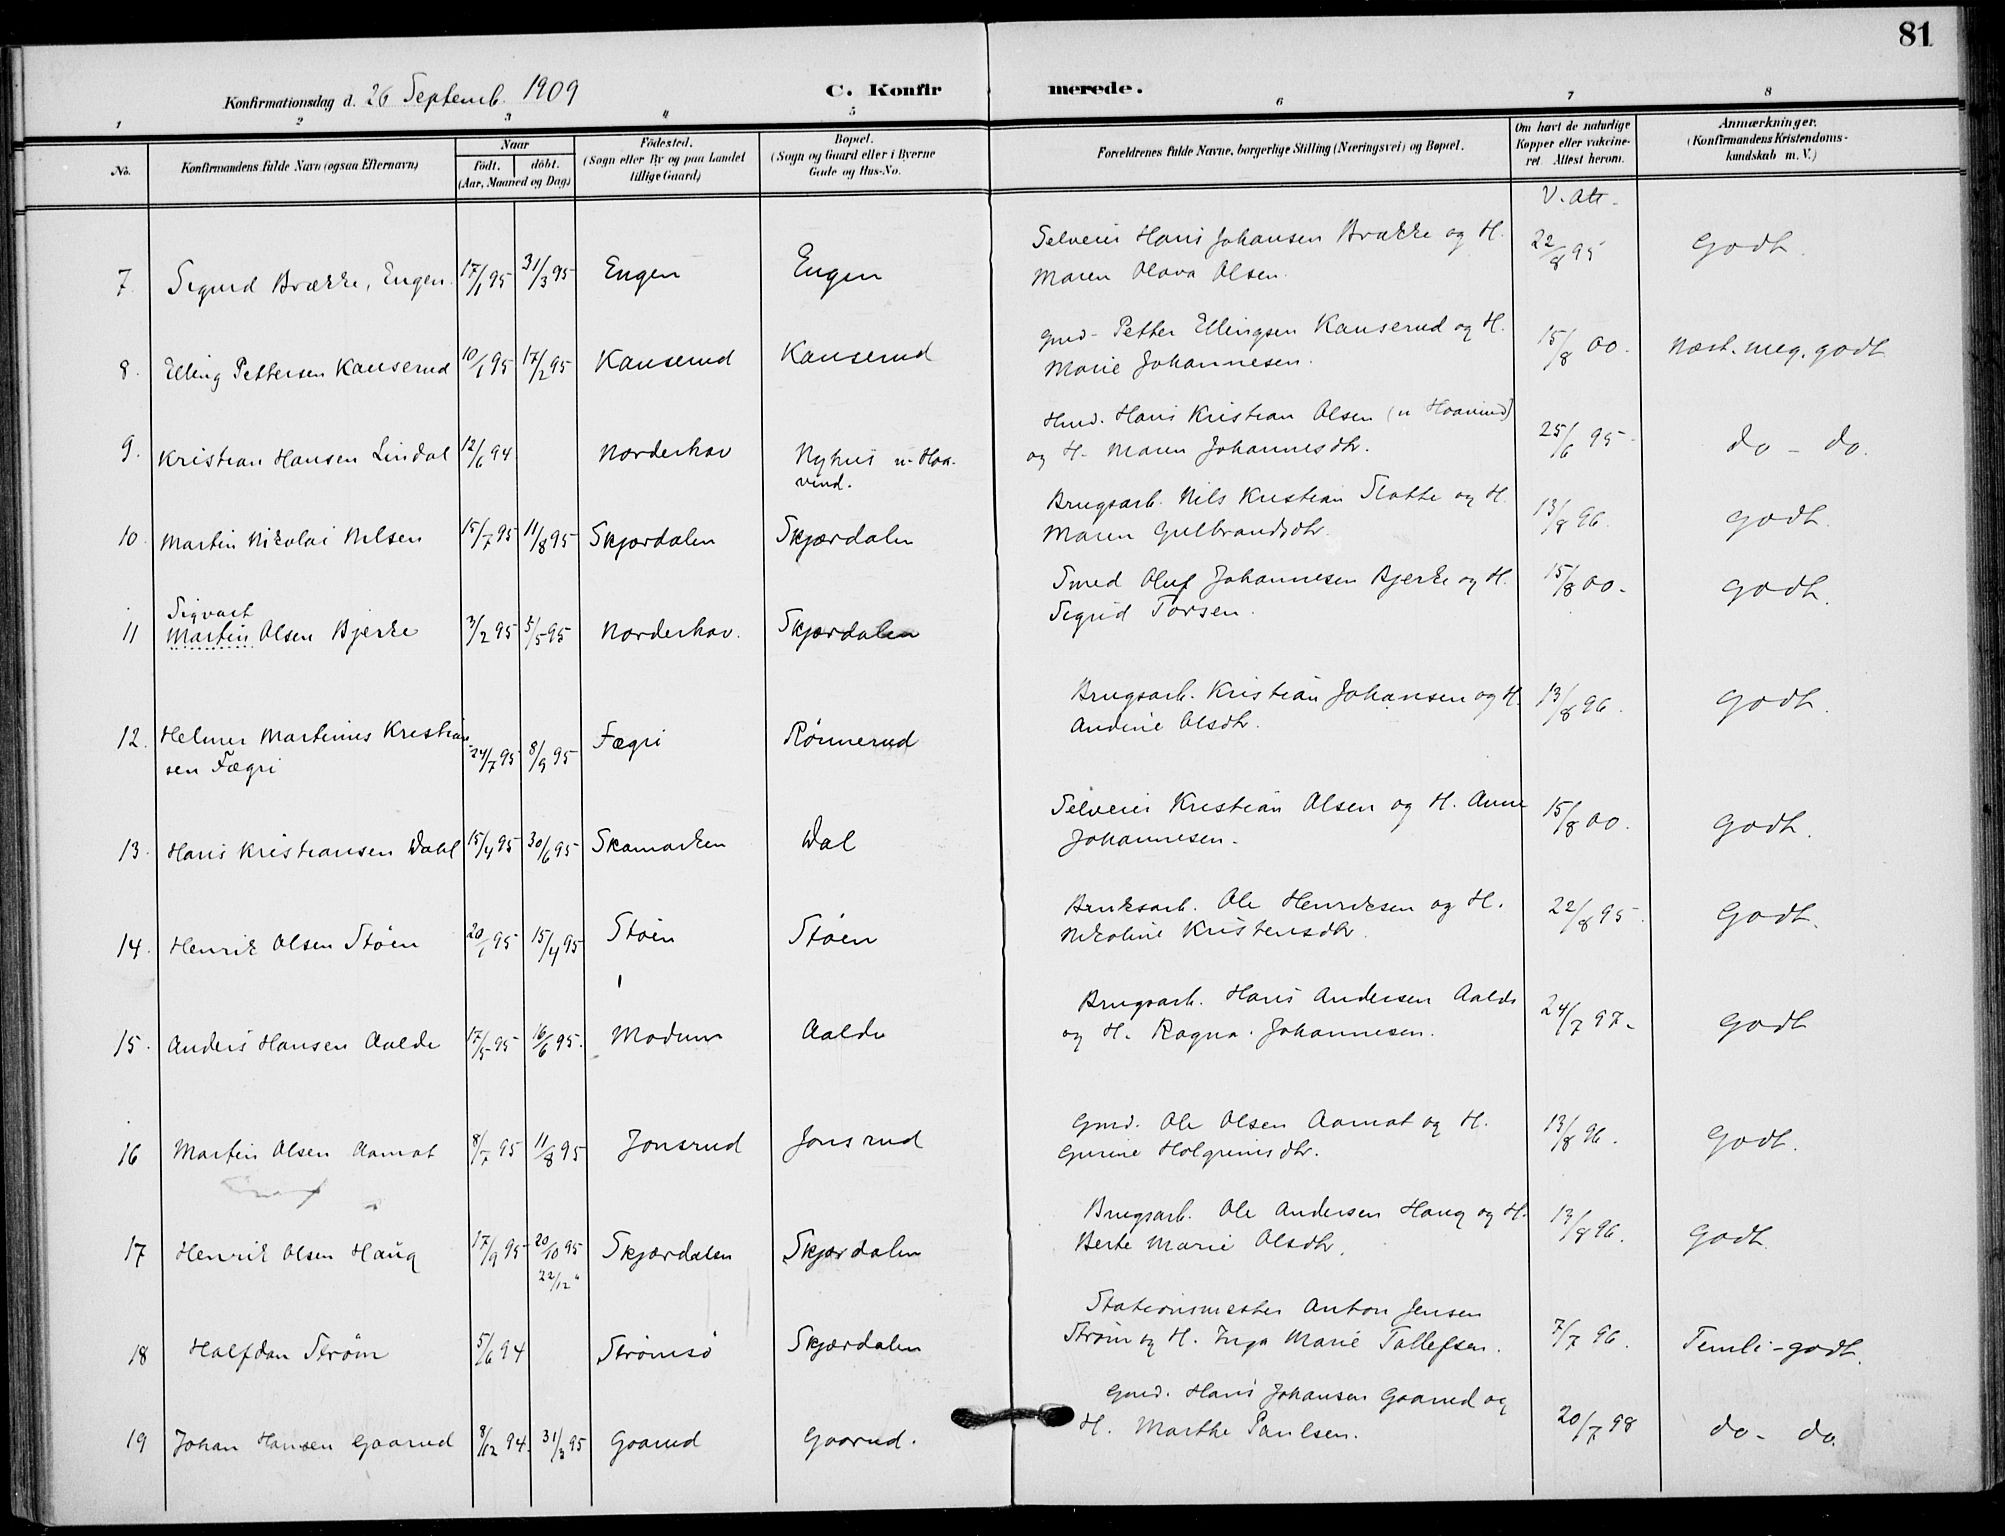 81
Konfirmationsdag d. 26 Septemb. 1909
C. Konfirmerede.
1 2 3 4 5 6 7 8
No.
Konfirmandens fulde Navn (ogsaa Efternavn)
Naar
födt. döbt.
(Aar, Maaned og Dag)
Födested.
(Sogn eller By og paa Landet
tillige Gaard)
Bopæl.
(Sogn og Gaard eller i Byerne
Gade og Hus-No.
Forældrenes fulde Navne, borgerlige Stilling (Næringsvei) og Bopæl.
Om havt de naturlige
Kopper eller vakcine-
ret. Attest herom.
Anmærkninger.
(Konfirmandens Kristendoms-
kundskab m. V.)
V. Att.
7. Sigurd Brække, Engen. 17/1 95 31/3 95 Engen Engen
Selveier Hans Johansen Brække og H.
Maren Olava Olsen. 22/8 95 Godt.
8. Elling Pettersen Kauserud 10/1 95 17/2 95 Kauserud Kauserud
Gmd. Petter Ellingsen Kauserud og H.
Marie Johannesen. 15/8 00. Næst. meg. godt
9. Kristian Hansen Lindal 12/6 94 Norderhov Nyhus u. Haa-
vind.
Hmd. Hans Kristian Olsen (u Haavind)
og H. Maren Johannesdtr. 25/6 95. do - do.
10. Martin Nikolai Nilsen 15/7 95 11/8 95 Skjærdalen Skjærdalen
Brugsarb. Nils Kristian Slotte og H.
Maren Gulbrandsdtr. 13/8 96. godt.
11 Sigvart
Martin Olsen Bjerke 3/2 95 5/5 95 Norderhov. Skjærdalen
Smed Oluf Johannesen Bjerke og H.
Sigrid Torsen. 15/8 00. godt.
12. Helmer Martinius Kristian-
sen Fægri 24/7 95 8/9 95 Fægri Rønnerud
Brugsarb. Kristian Johansen og H.
Andine Olsdtr. 13/8 96. godt.
13. Hans Kristiansen Dahl 15/4 95 30/6 95 Skamarken Dal
Selveier Kristian Olsen og H. Anne
Johannesen. 15/8 00. godt.
14. Henrik Olsen Støen 20/1 95 15/4 95 Støen Støen
Bruksarb. Ole Henriksen og H.
Nikoline Kristensdtr. 22/8 95. Godt.
15. Anders Hansen Aalde 17/5 95 16/6 95. Modum Aalde
Brugsarb. Hans Andersen Aalde
og H. Ragna Johannesen. 24/7 97. godt
16 Martin Olsen Aamot 8/7 95 11/8 95 Jonsrud Jonsrud
Gmd. Ole Olsen Aamot og H.
Gurine Holgrimsdtr. 13/8 96. Godt.
17 Henrik Olsen Haug 17/9 95 20/10 95
22/12 " Skjærdalen Skjærdalen
Brugsarb. Ole Andersen Haug og H.
Berte Marie Olsdtr. 13/8 96. Godt.
18 Halfdan Strøm 5/6 94 Strømsø Skjærdalen
Stationsmester Anton Jensen
Strøm og H. Inga Marie Tollefsen. 7/7 96. Temli-godt.
19 Johan Hansen Gaarud 8/12 94. 31/3 95 Gaarud Gaarud.
Gmd. Hans Johansen Gaarud og
H. Marthe Paulsen. 20/7 98 do - do.